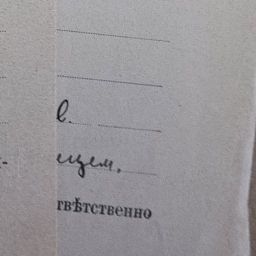 в.
ицем,
твѣтственно